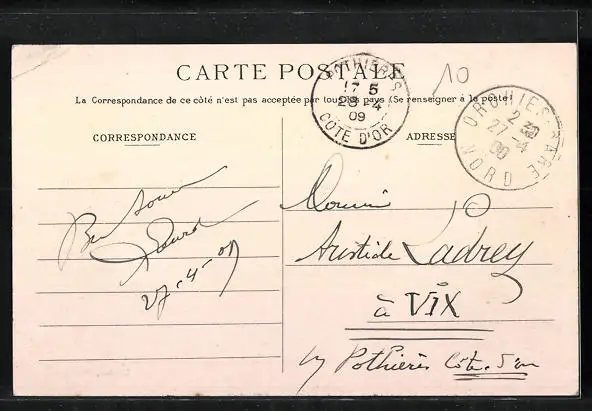 CARTE POSTALE
La Correspondance de ce côté n'est pas acceptée par tous les pays (Se renseigner à la poste)
CORRESPONDANCE
ADRESSE
POTHIERES
17 5
28 -4
09
COTE D'OR
10
ORCHIES-GARE
27 -4
09
NORD
Bon Souvenir
27-4-09
Monsieur
Aristide Ladrey
à VIX
Pothières Côte-d'Or